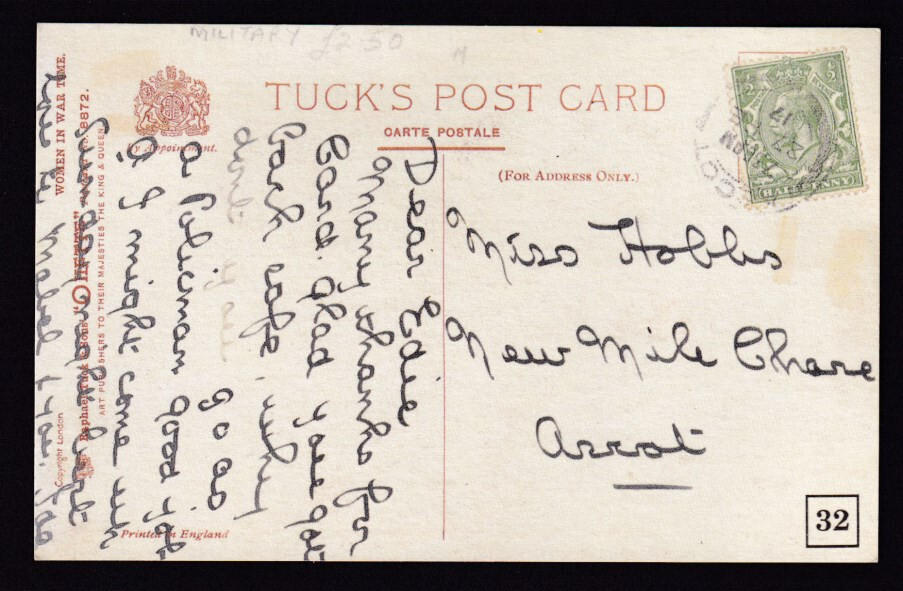 MILITARY £2-50
TUCK'S POST CARD
CARTE POSTALE
(FOR ADDRESS ONLY.)
By Appointment.
½ ½
HALFPENNY
27
17
Miss Hobbs
New Mile Chase
Ascot
32
Dear Edie
Many thanks for
Card. Glad you got
back safe. Why
don't you go as
a Policman good job
I might come up
Love to Mabel & you.
WOMEN IN WAR TIME.
Raphael Tuck & Sons' "OILETTE" 8872.
ART PUBLISHERS TO THEIR MAJESTIES THE KING & QUEEN
Copyright London
Printed in England